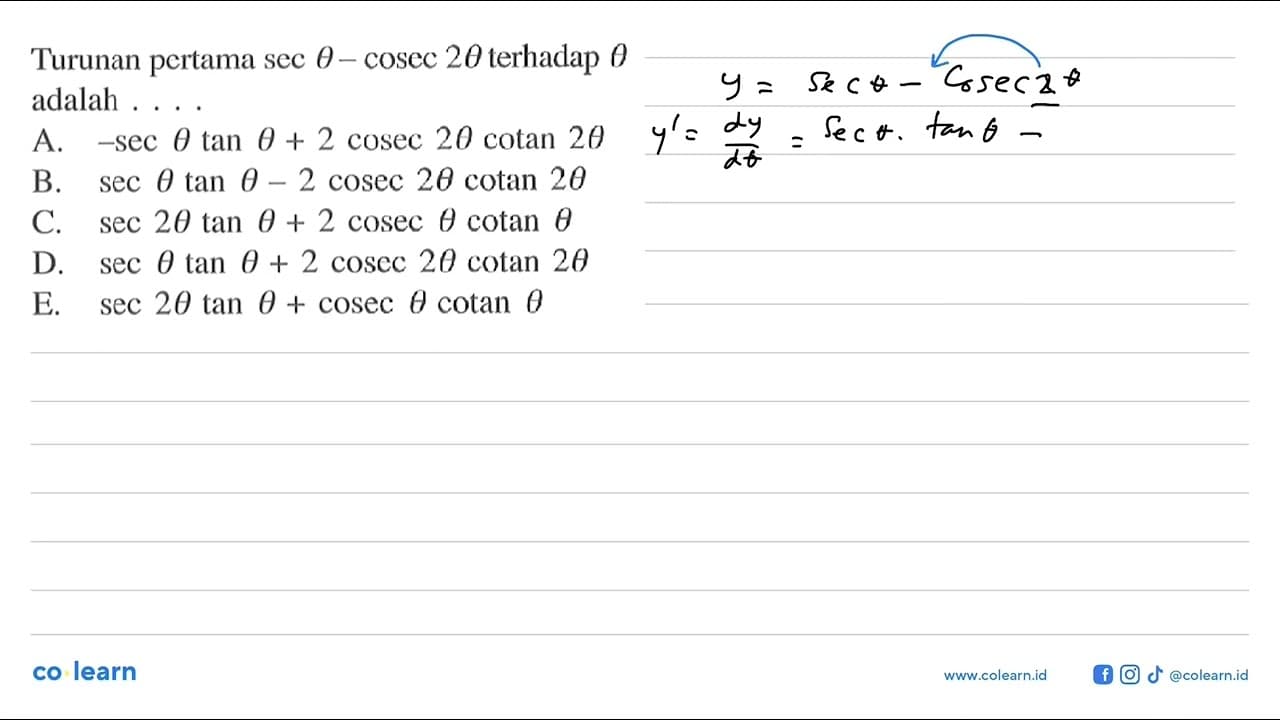 Turunan pertama sec θ – cosec 2θ terhadap θ
adalah . . . .
A. –sec θ tan θ + 2 cosec 2θ cotan 2θ
B. sec θ tan θ – 2 cosec 2θ cotan 2θ
C. sec 2θ tan θ + 2 cosec θ cotan θ
D. sec θ tan θ + 2 cosec 2θ cotan 2θ
E. sec 2θ tan θ + cosec θ cotan θ
y = Sec θ – Cosec 2θ
y' = dy/dθ = Sec θ. tan θ –
co learn
www.colearn.id
@colearn.id